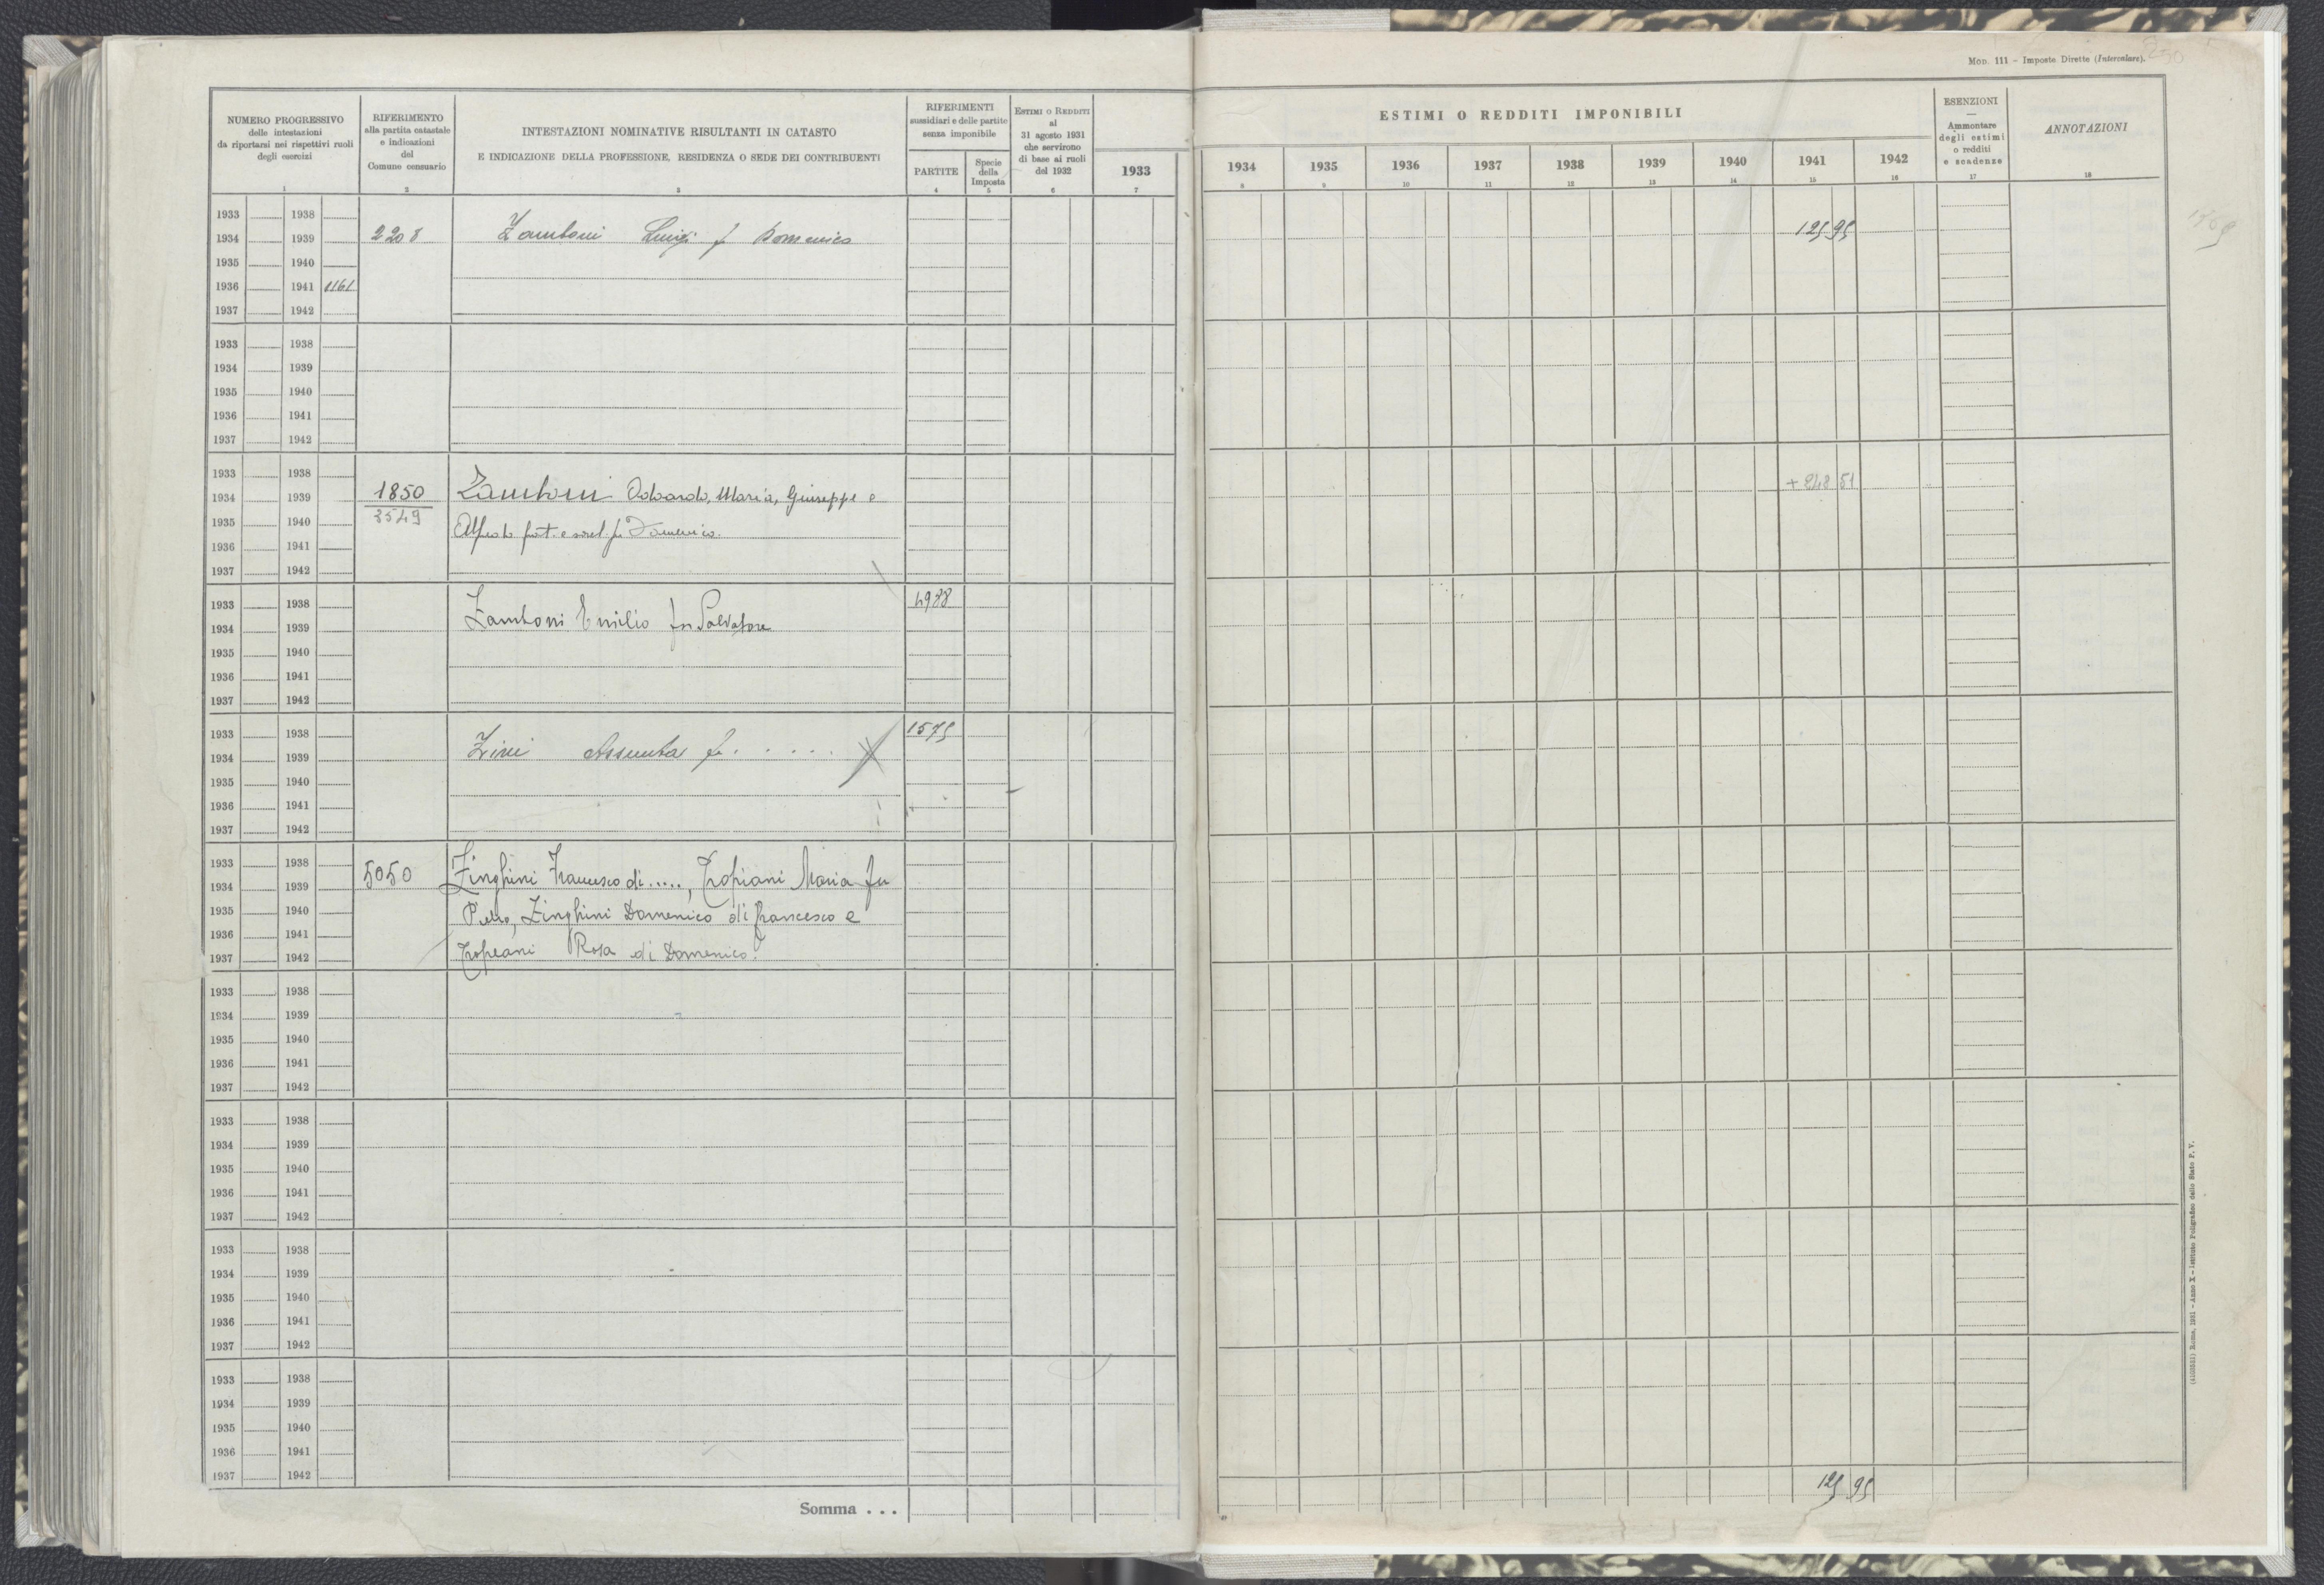 Mod. 111 - Imposte Dirette (Intercalare).
NUMERO PROGRESSIVO
delle intestazioni
da riportarsi nei rispettivi ruoli
degli esercizi
1
RIFERIMENTO
alla partita catastale
e indicazioni
del
Comune censuario
2
INTESTAZIONI NOMINATIVE RISULTANTI IN CATASTO
E INDICAZIONE DELLA PROFESSIONE, RESIDENZA O SEDE DEI CONTRIBUENTI
3
RIFERIMENTI
sussidiari e delle partite
senza imponibile
PARTITE
4
Specie
della
Imposta
5
ESTIMI O REDDITI
al
31 agosto 1931
che servirono
di base ai ruoli
del 1932
6
ESTIMI O REDDITI IMPONIBILI
1933 1934 1935 1936 1937 1938 1939 1940 1941 1942
7 8 9 10 11 12 13 14 15 16
ESENZIONI
—
Ammontare
degli estimi
o redditi
e scadenze
17
ANNOTAZIONI
18
1933 1938
1934 1939 2208 Zamboni Luigi f Domenico 125 95
1935 1940
1936 1941 1161
1937 1942
1933 1938
1934 1939
1935 1940
1936 1941
1937 1942
1933 1938
1934 1939 1850 Zamboni Odoardo, Maria, Giuseppe e + 248 51
1935 1940 3549 Alfredo frat. e sorel. fu Domenico.
1936 1941
1937 1942
1933 1938 4988
1934 1939 Zamboni Emilio fu Salvatore
1935 1940
1936 1941
1937 1942
1933 1938 1575
1934 1939 Zini Assunta fu . . . . .
1935 1940
1936 1941
1937 1942
1933 1938
1934 1939 5050 Zinghini Francesco di ....., Tropiani Maria fu
1935 1940 Pietro, Zinghini Domenico di Francesco e
1936 1941
1937 1942 Tropeani Rosa di Domenico.
1933 1938
1934 1939
1935 1940
1936 1941
1937 1942
1933 1938
1934 1939
1935 1940
1936 1941
1937 1942
1933 1938
1934 1939
1935 1940
1936 1941
1937 1942
1933 1938
1934 1939
1935 1940
1936 1941
1937 1942
Somma . . . 125 95
Roma, 1931 - Anno X - Istituto Poligrafico dello Stato P. V.